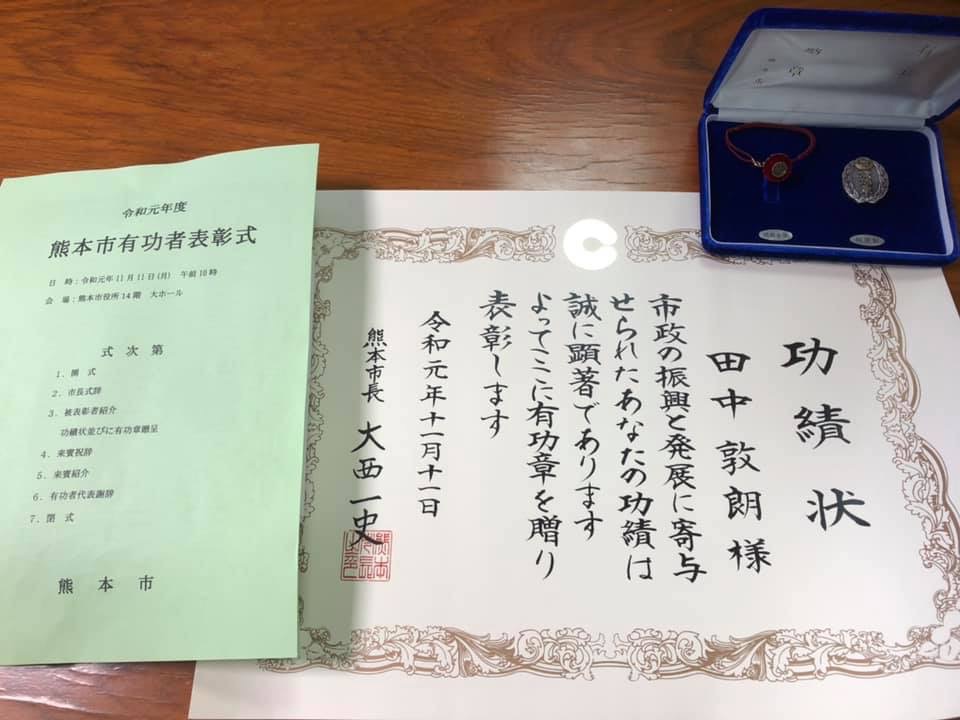 令和元年度
熊本市有功者表彰式
日 時：令和元年11月11日(月) 午前10時
会 場：熊本市役所14階 大ホール
式 次 第
1. 開 式
2. 市長式辞
3. 被表彰者紹介
功績状並びに有功章贈呈
4. 来賓祝辞
5. 来賓紹介
6. 有功者代表謝辞
7. 閉 式
熊 本 市
功績状
田中敦朗様
市政の振興と発展に寄与
せられたあなたの功績は
誠に顕著であります
よってここに有功章を贈り
表彰します
令和元年十一月十一日
熊本市長 大西一史